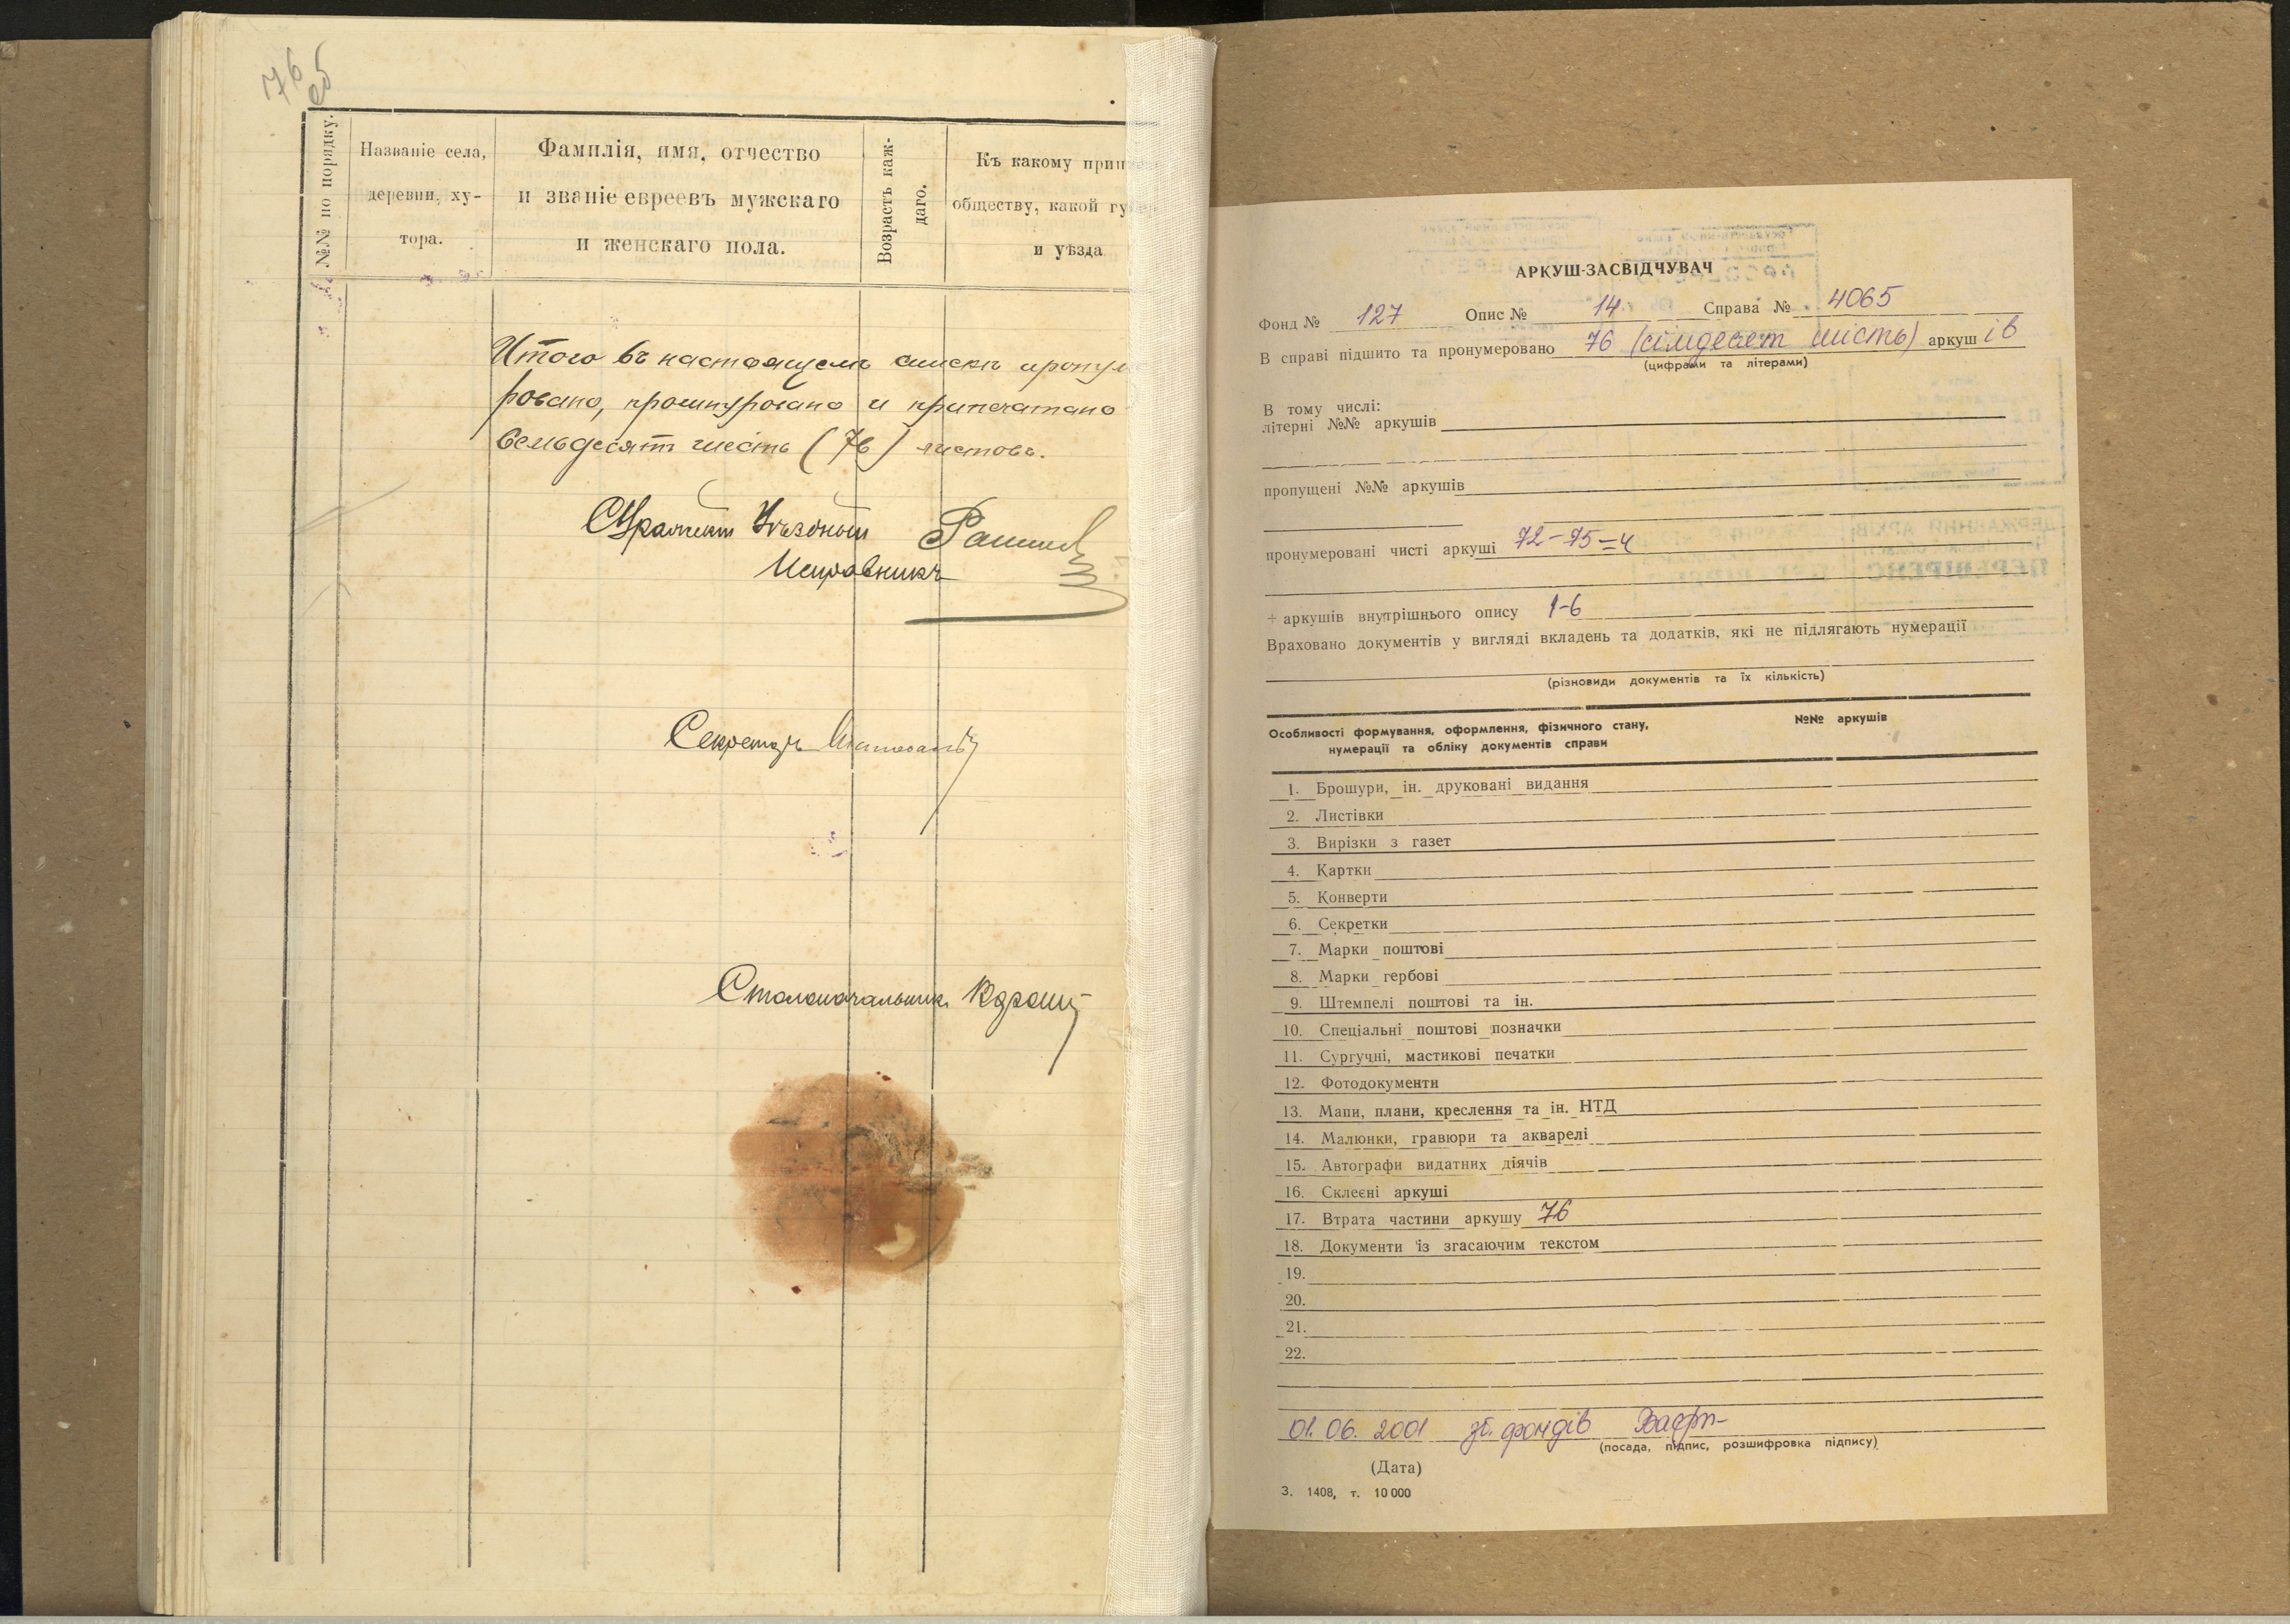 76
об
№№ по порядку.
Названіе села,
деревни, ху-
тора.
Фамилія, имя, отчество
и званіе евреевъ мужскаго
и женскаго пола.
Возрастъ каж-
даго.
Къ какому прип
обществу, какой гу
и уѣзда
Итого въ настоящемъ спискѣ прону
ровано, прошнуровано и припечатано
семьдесят шесть (76) листовъ.
Уѣздный
Исправникъ
Секретарь
Столоначальникъ
АРКУШ-ЗАСВІДЧУВАЧ
Фонд № 127 Опис № 14 Справа № 4065
В справі підшито та пронумеровано 76 (сімдесят шість) аркуш ів
(цифрами та літерами)
В тому числі:
літерні №№ аркушів
пропущені №№ аркушів
пронумеровані чисті аркуші 72-75=4
+ аркушів внутрішнього опису 1-6
Враховано документів у вигляді вкладень та додатків, які не підлягають нумерації
(різновиди документів та їх кількість)
Особливості формування, оформлення, фізичного стану,
нумерації та обліку документів справи
№№ аркушів
1. Брошури, ін. друковані видання
2. Листівки
3. Вирізки з газет
4. Картки
5. Конверти
6. Секретки
7. Марки поштові
8. Марки гербові
9. Штемпелі поштові та ін.
10. Спеціальні поштові позначки
11. Сургучні, мастикові печатки
12. Фотодокументи
13. Мапи, плани, креслення та ін. НТД
14. Малюнки, гравюри та акварелі
15. Автографи видатних діячів
16. Склеєні аркуші
17. Втрата частини аркушу 76
18. Документи із згасаючим текстом
19.
20.
21.
22.
01.06.2001 зб. фондів
(посада, підпис, розшифровка підпису)
(Дата)
З. 1408, т. 10 000